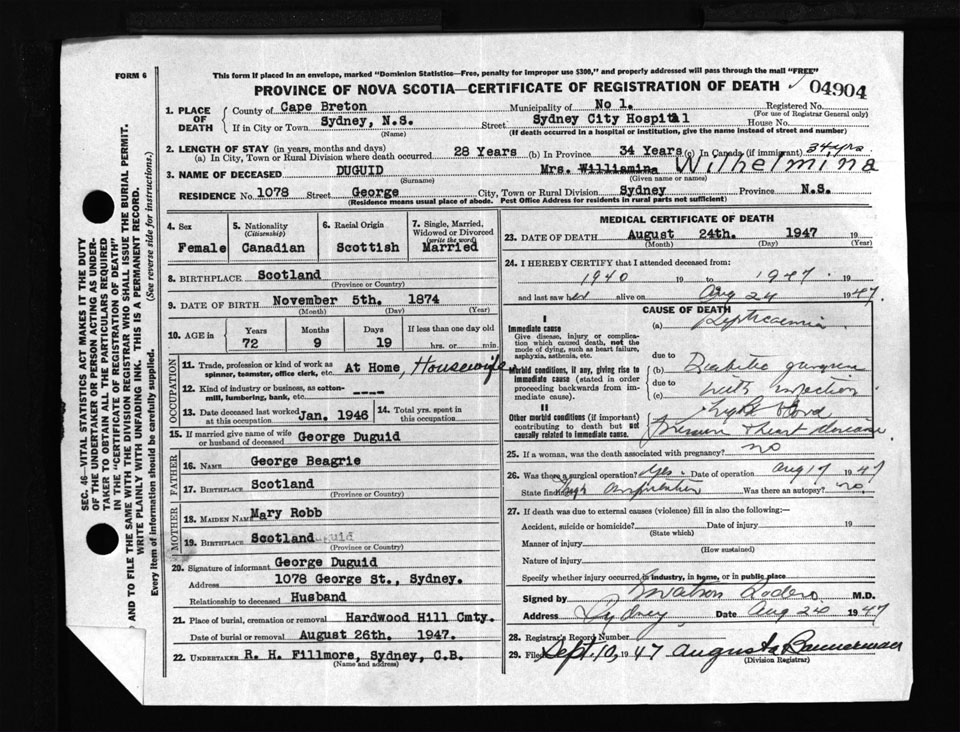 FORM 6
This form if placed in an envelope, marked "Dominion Statistics—Free, penalty for improper use $300," and properly addressed will pass through the mail "FREE"
PROVINCE OF NOVA SCOTIA—CERTIFICATE OF REGISTRATION OF DEATH 04904
1. PLACE OF DEATH County of Cape Breton Municipality of No 1. Registered No.
(For use of Registrar General only)
If in City or Town Sydney, N.S. Street Sydney City Hospital House No.
(Name) (If death occurred in a hospital or institution, give the name instead of street and number)
2. LENGTH OF STAY (in years, months and days)
(a) In City, Town or Rural Division where death occurred 28 Years (b) In Province 34 Years (c) In Canada (if immigrant) 34 yrs.
3. NAME OF DECEASED DUGUID Mrs. Williamina Wilhelmina
(Surname) (Given name or names)
RESIDENCE No. 1078 Street George City, Town or Rural Division Sydney Province N.S.
(Residence means usual place of abode. Post Office Address for residents in rural parts not sufficient)
4. Sex Female
5. Nationality (Citizenship) Canadian
6. Racial Origin Scottish
7. Single, Married, Widowed or Divorced (write the word) Married
8. BIRTHPLACE Scotland
(Province or Country)
9. DATE OF BIRTH November 5th. 1874
(Month) (Day) (Year)
10. AGE in Years Months Days If less than one day old
72 9 19 hrs. or min.
OCCUPATION
11. Trade, profession or kind of work as spinner, teamster, office clerk, etc. At Home, Housewife
12. Kind of industry or business, as cotton-mill, lumbering, bank, etc. ----
13. Date deceased last worked at this occupation Jan. 1946
14. Total yrs. spent in this occupation
15. If married give name of wife or husband of deceased George Duguid
FATHER
16. NAME George Beagrie
17. BIRTHPLACE Scotland
(Province or Country)
MOTHER
18. MAIDEN NAME Mary Robb
19. BIRTHPLACE Scotland
(Province or Country)
20. Signature of informant George Duguid
Address 1078 George St., Sydney.
Relationship to deceased Husband
21. Place of burial, cremation or removal Hardwood Hill Cmty.
Date of burial or removal August 26th. 1947.
22. UNDERTAKER R. H. Fillmore, Sydney, C.B.
(Name and address)
MEDICAL CERTIFICATE OF DEATH
23. DATE OF DEATH August 24th. 1947 19
(Month) (Day) (Year)
24. I HEREBY CERTIFY that I attended deceased from:
1940 19 to 1947 19
and last saw her alive on Aug 24 1947.
CAUSE OF DEATH
I
Immediate cause
Give disease, injury or complication which caused death, not the mode of dying, such as heart failure, asphyxia, asthenia, etc.
(a) Septicaemia
due to
Morbid conditions, if any, giving rise to immediate cause (stated in order proceeding backwards from immediate cause).
(b) Diabetic gangrene
due to
(c) with infection
II
Other morbid conditions (if important) contributing to death but not causally related to immediate cause.
High blood pressure & heart disease
25. If a woman, was the death associated with pregnancy? no
26. Was there a surgical operation? Yes. Date of operation Aug 17 1947
State findings Amputation Was there an autopsy? no.
27. If death was due to external causes (violence) fill in also the following:—
Accident, suicide or homicide? Date of injury 19
(State which)
Manner of injury
(How sustained)
Nature of injury
Specify whether injury occurred in industry, in home, or in public place
Signed by M.D.
Address Sydney Date Aug 24 1947
28. Registrar's Record Number
29. Filed Sept. 10, 1947 Augusta Bannerman
(Division Registrar)
SEC. 46—VITAL STATISTICS ACT MAKES IT THE DUTY
OF THE UNDERTAKER OR PERSON ACTING AS UNDER-
TAKER TO OBTAIN ALL THE PARTICULARS REQUIRED
IN THE "CERTIFICATE OF REGISTRATION OF DEATH"
AND TO FILE THE SAME WITH THE DIVISION REGISTRAR WHO SHALL ISSUE THE BURIAL PERMIT.
WRITE PLAINLY WITH UNFADING INK. THIS IS A PERMANENT RECORD.
Every item of information should be carefully supplied. (See reverse side for instructions.)